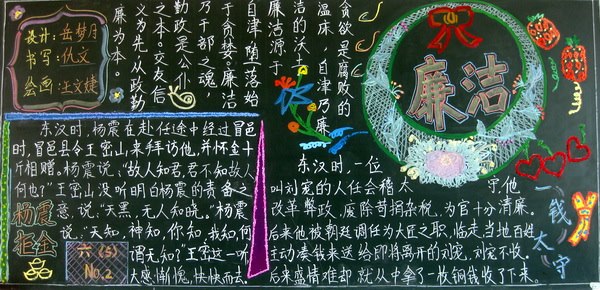 设计:岳梦月
书写:仇文
绘画:王文婕
贪欲是腐败的
温床,自津乃廉
洁的沃土
廉洁源于
自津,堕落始
于贪婪。廉洁
乃干部之魂,
勤政是公仆
之本。交友信
义为先,从政勤
廉为本。
廉洁
东汉时,杨震在赴任途中经过冒邑
时,冒邑县令王密山来拜访他,并怀金十
斤相赠。杨震说:"故人知君,君不知故人
何也?"王密山没听明白杨震的责备之
意,说:"天黑,无人知晓。"杨震
说:"天知,神知,你知,我知,何
谓无知?"王密这一听
大感惭愧,怏怏而去。
杨震
拒金
六(5)
No.2
东汉时,一位
叫刘宠的人任会稽太守,他
改革弊政,废除苛捐杂税,为官十分清廉。
后来他被朝廷调任为大匠之职,临走当地百姓
主动凑钱来送给即将离开的刘宠,刘宠不收。
后来盛情难却,就从中拿了一枚铜钱收了下来。
一钱太守